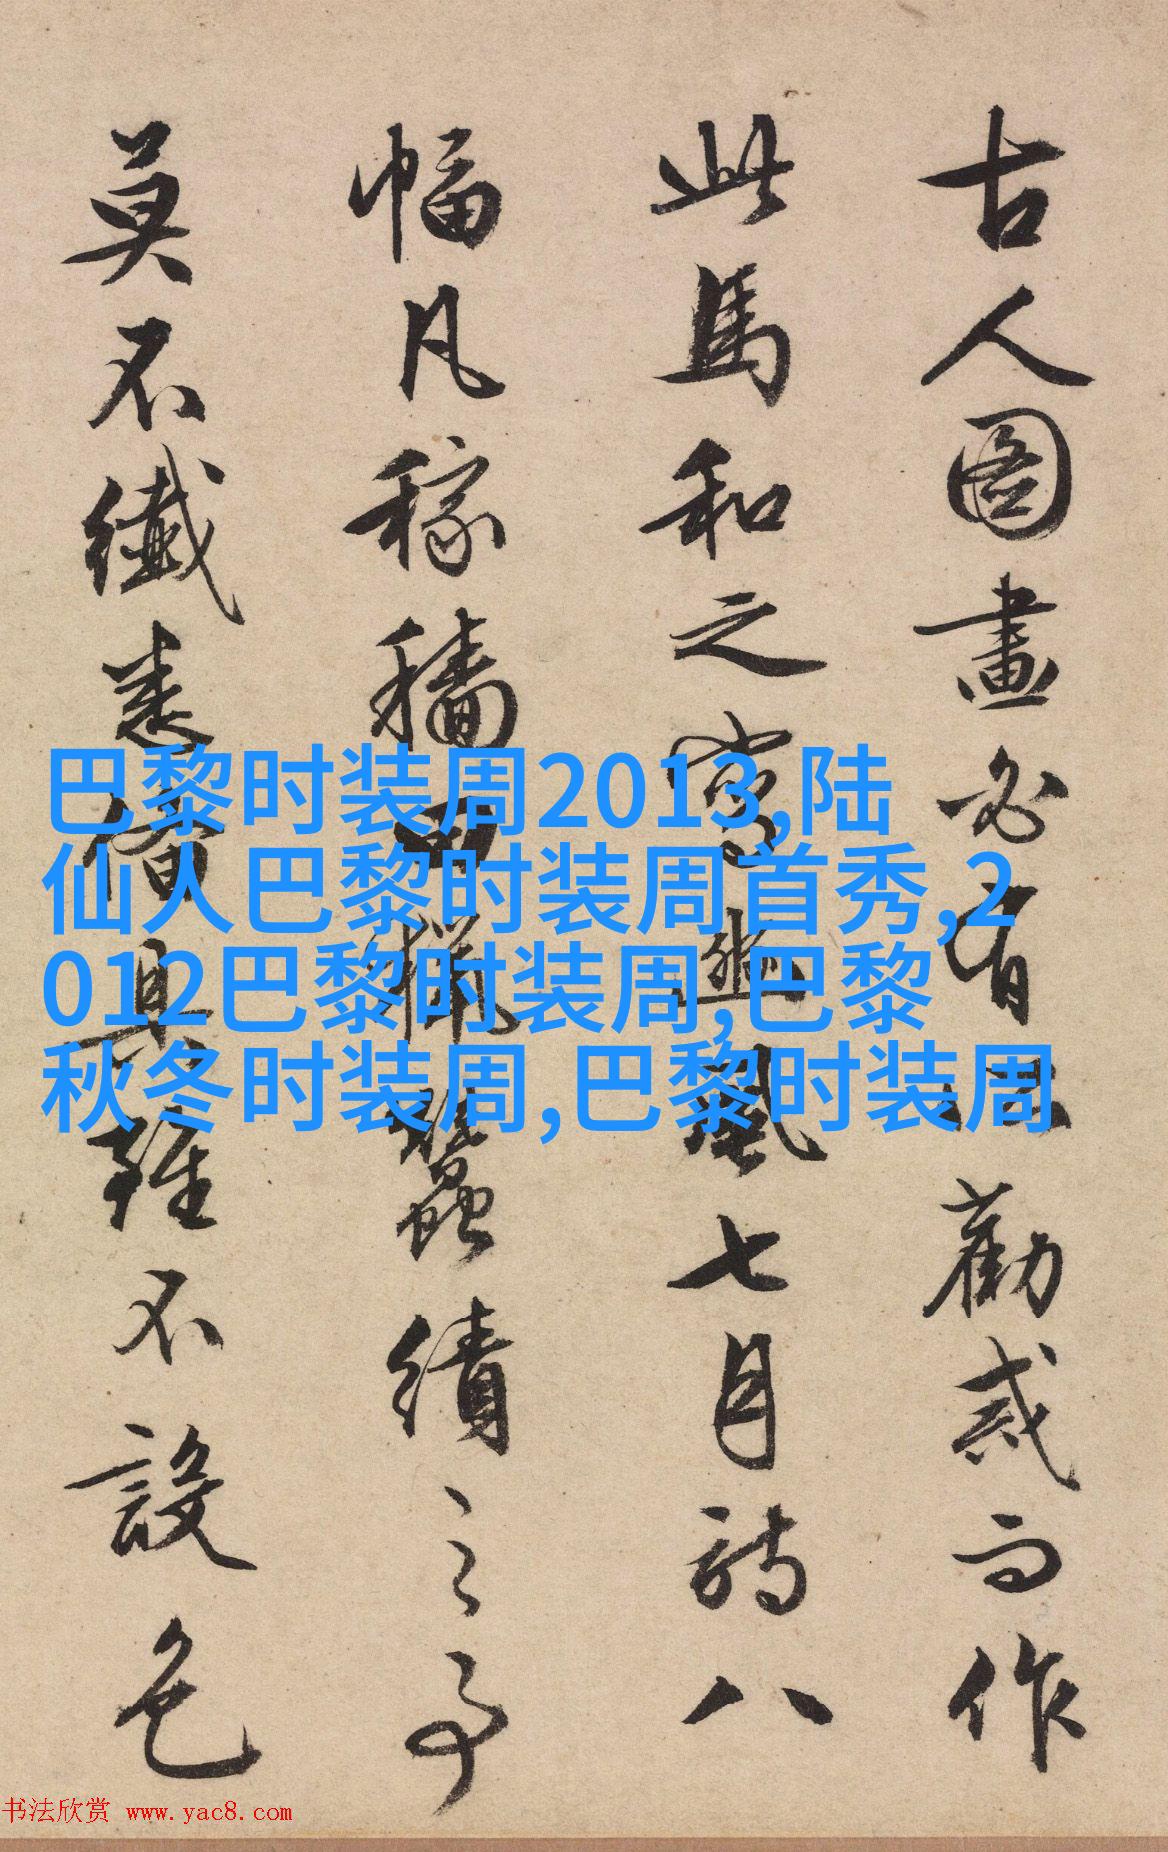 古人圖畫必有以勸戒而作
此馬和之寫豳風七月詩八
幅凡稼穡田獵蠶績之事
莫不纖悉備具雖不設色
巴黎时装周2013,陆
仙人巴黎时装周首秀,2
012巴黎时装周,巴黎
秋冬时装周,巴黎时装周
书法欣赏 www.yac8.com